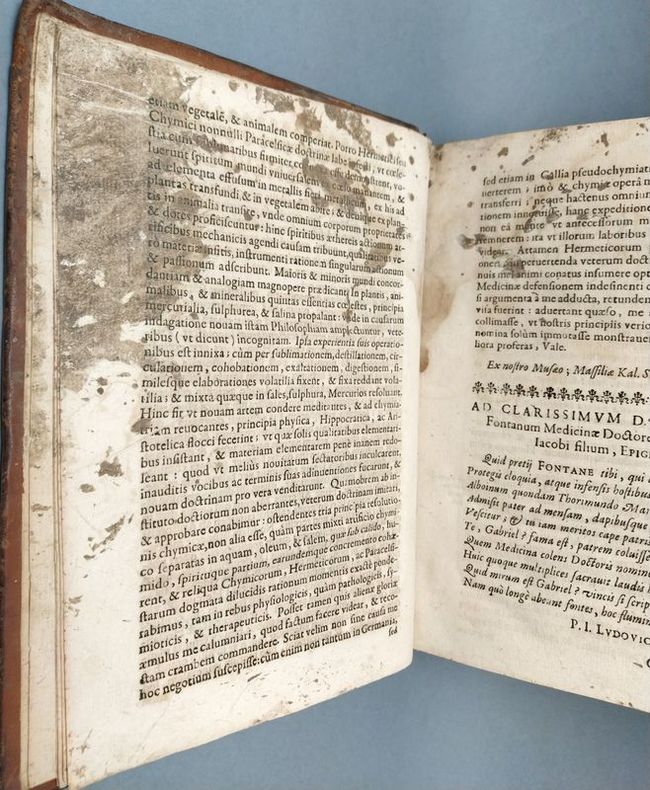 etiam vegetalē, & animalem comperiat. Porro Hermetici seu
Chymici nonnulli Paracelsicæ doctrinæ labe infecti, vt cœle-
stia cum sublunaribus firmiter cohærere demonstrent, vo-
luerunt spiritum mundi vniuersalem è cœlo manantem, &
ad elementa effusum in metallis figi metallicum, ex his ad
plantas transfundi, & in vegetalem abire; & denique ex plan-
tis in animalia transire, vnde omnium corporum proprietates
& dotes proficiscuntur: hinc spiritibus æthereis actionum ar-
tificibus mechanicis agendi causam tribuunt, qualitatibus ve-
rò materiæ insitis, instrumenti rationem singularum actionum
& passionum adscribunt. Maioris & minoris mundi concor-
dantiam & analogiam magnopere prædicant. In plantis, ani-
malibus, & mineralibus quintas essentias cœlestes, principia
mercurialia, sulphurea, & salina propalant: vnde in causarum
indagatione nouam istam Philosophiam amplectuntur, vete-
ribus (vt dicunt) incognitam. Ipsa experientia suis operatio-
nibus est innixa; cùm per sublimationem, destillationem, cir-
culationem, cohobationem, exaltationem, digestionem, si-
milesque elaborationes volatilia fixent, & fixa reddant vola-
tilia; & mixta quæque in sales, sulphura, Mercurios resoluant.
Hinc fit vt nouam artem condere meditantes, & ad chymia-
triam reuocantes, principia physica, Hippocratica, ac Ari-
stotelica flocci fecerint: vt quæ solis qualitatibus elementari-
bus insistant, & materiam elementarem penè inanem redo-
leant: quod vt meliùs nouitatum sectatoribus inculcarent,
inauditis vocibus ac terminis suas adinuentiones fucarunt, &
nouam doctrinam pro vera venditarunt. Quimobrem ab in-
stituto doctiorum non aberrantes, veterum doctrinam imitari,
& approbare conabimur: ostendentes tria principia resolutio-
nis chymicæ, non alia esse, quàm partes mixti artificio chymi-
co separatas in aquam, oleum, & salem, quæ sub calido, hu-
mido, spirituque partium, earundemque concremento cohæ-
rent, & reliqua Chymicorum, Hermeticorum, ac Paracelsi-
starum dogmata dilucidis rationum momentis exactè ponde-
rabimus, tam in rebus physiologicis, quàm pathologicis, sy-
mioticis, & therapeuticis. Posset tamen quis alienæ gloriæ
æmulus me calumniari, quod factum facere videar, & reco-
ctam crambem commandere. Sciat velim non sine causa me
hoc negotium suscepisse: cùm enim non tantùm in Germania,
sed
sed etiam in Gallia pseudochymiat
uerterem; imò & chymiæ operâ n
transferri; neque hactenus omniu
tionem innotuisse, hanc expeditione
non eâ mente vt antecessorum m
demnerem: ita vt illorum laboribus
videar. Attamen Hermeticorum
oneri, ac peruertenda veterum doct
nuis me animi conatus insumere opt
Medicinæ defensionem indesinenti c
si argumenta à me adducta, retunden
visa fuerint: aduertant quæso, me
collimasse, vt nostris principiis verio
nomina solùm immutasse monstrauer
liora proferas, Vale.
Ex nostro Musæo; Massiliæ Kal. S
AD CLARISSIMVM D.
Fontanum Medicinæ Doctore
Iacobi filium, EPIG
Quid pretij FONTANE tibi, qui
Protegis eloquia, atque infensis hostibus
Alboinum quondam Thorimundo Mar
Admisit pater ad mensam, dapibusque
Vescitur; & tu iam meritos cape patri
Te, Gabriel? fama est, patrem coluisse
Quem Medicina colens Doctoris nomin
Huic quoque multiplices sacraui: laudis
Quid mirum est Gabriel? vincis si scrip
Nam quò longè abeant fontes, hoc flumin
P. I. LVDOVIC